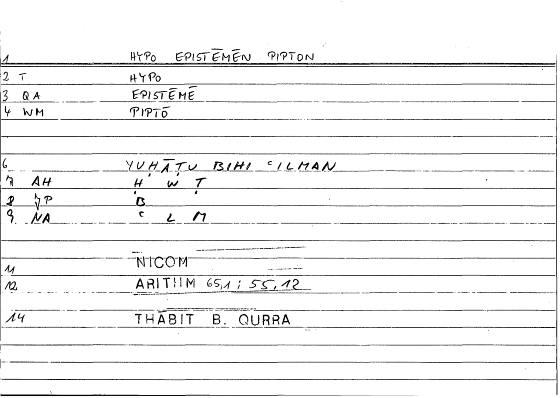 1 HYPO EPISTĒMĒN PIPTON
2 T HYPO
3 QA EPISTĒMĒ
4 WM PIPTŌ
6 YUḤĀṬU BIHI ʿILMAN
7 AH Ḥ W Ṭ
8 P B
9 NA ʿ L M
11 NICOM
12 ARITIIM 65,1 ; 55,12
14 THABIT B. QURRA